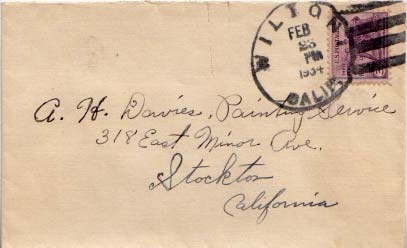 WILTON
FEB
23
PM
1934
CALIF.
A. H. Davies, Painting Service
318 East Minor Ave.
Stockton
California